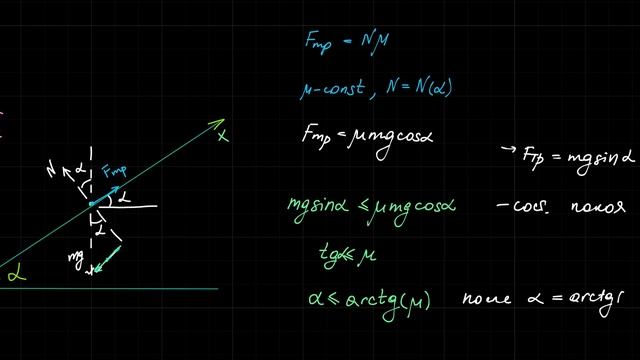 Fтр = Nμ
μ-const, N = N(α)
Fтр = μmgcosα
→ Fтр = mgsinα
mgsinα ≤ μmgcosα
- сост. покоя
tgα ≤ μ
α ≤ arctg(μ)
после α = arctg(
x
N
α
Fтр
α
α
mg
α